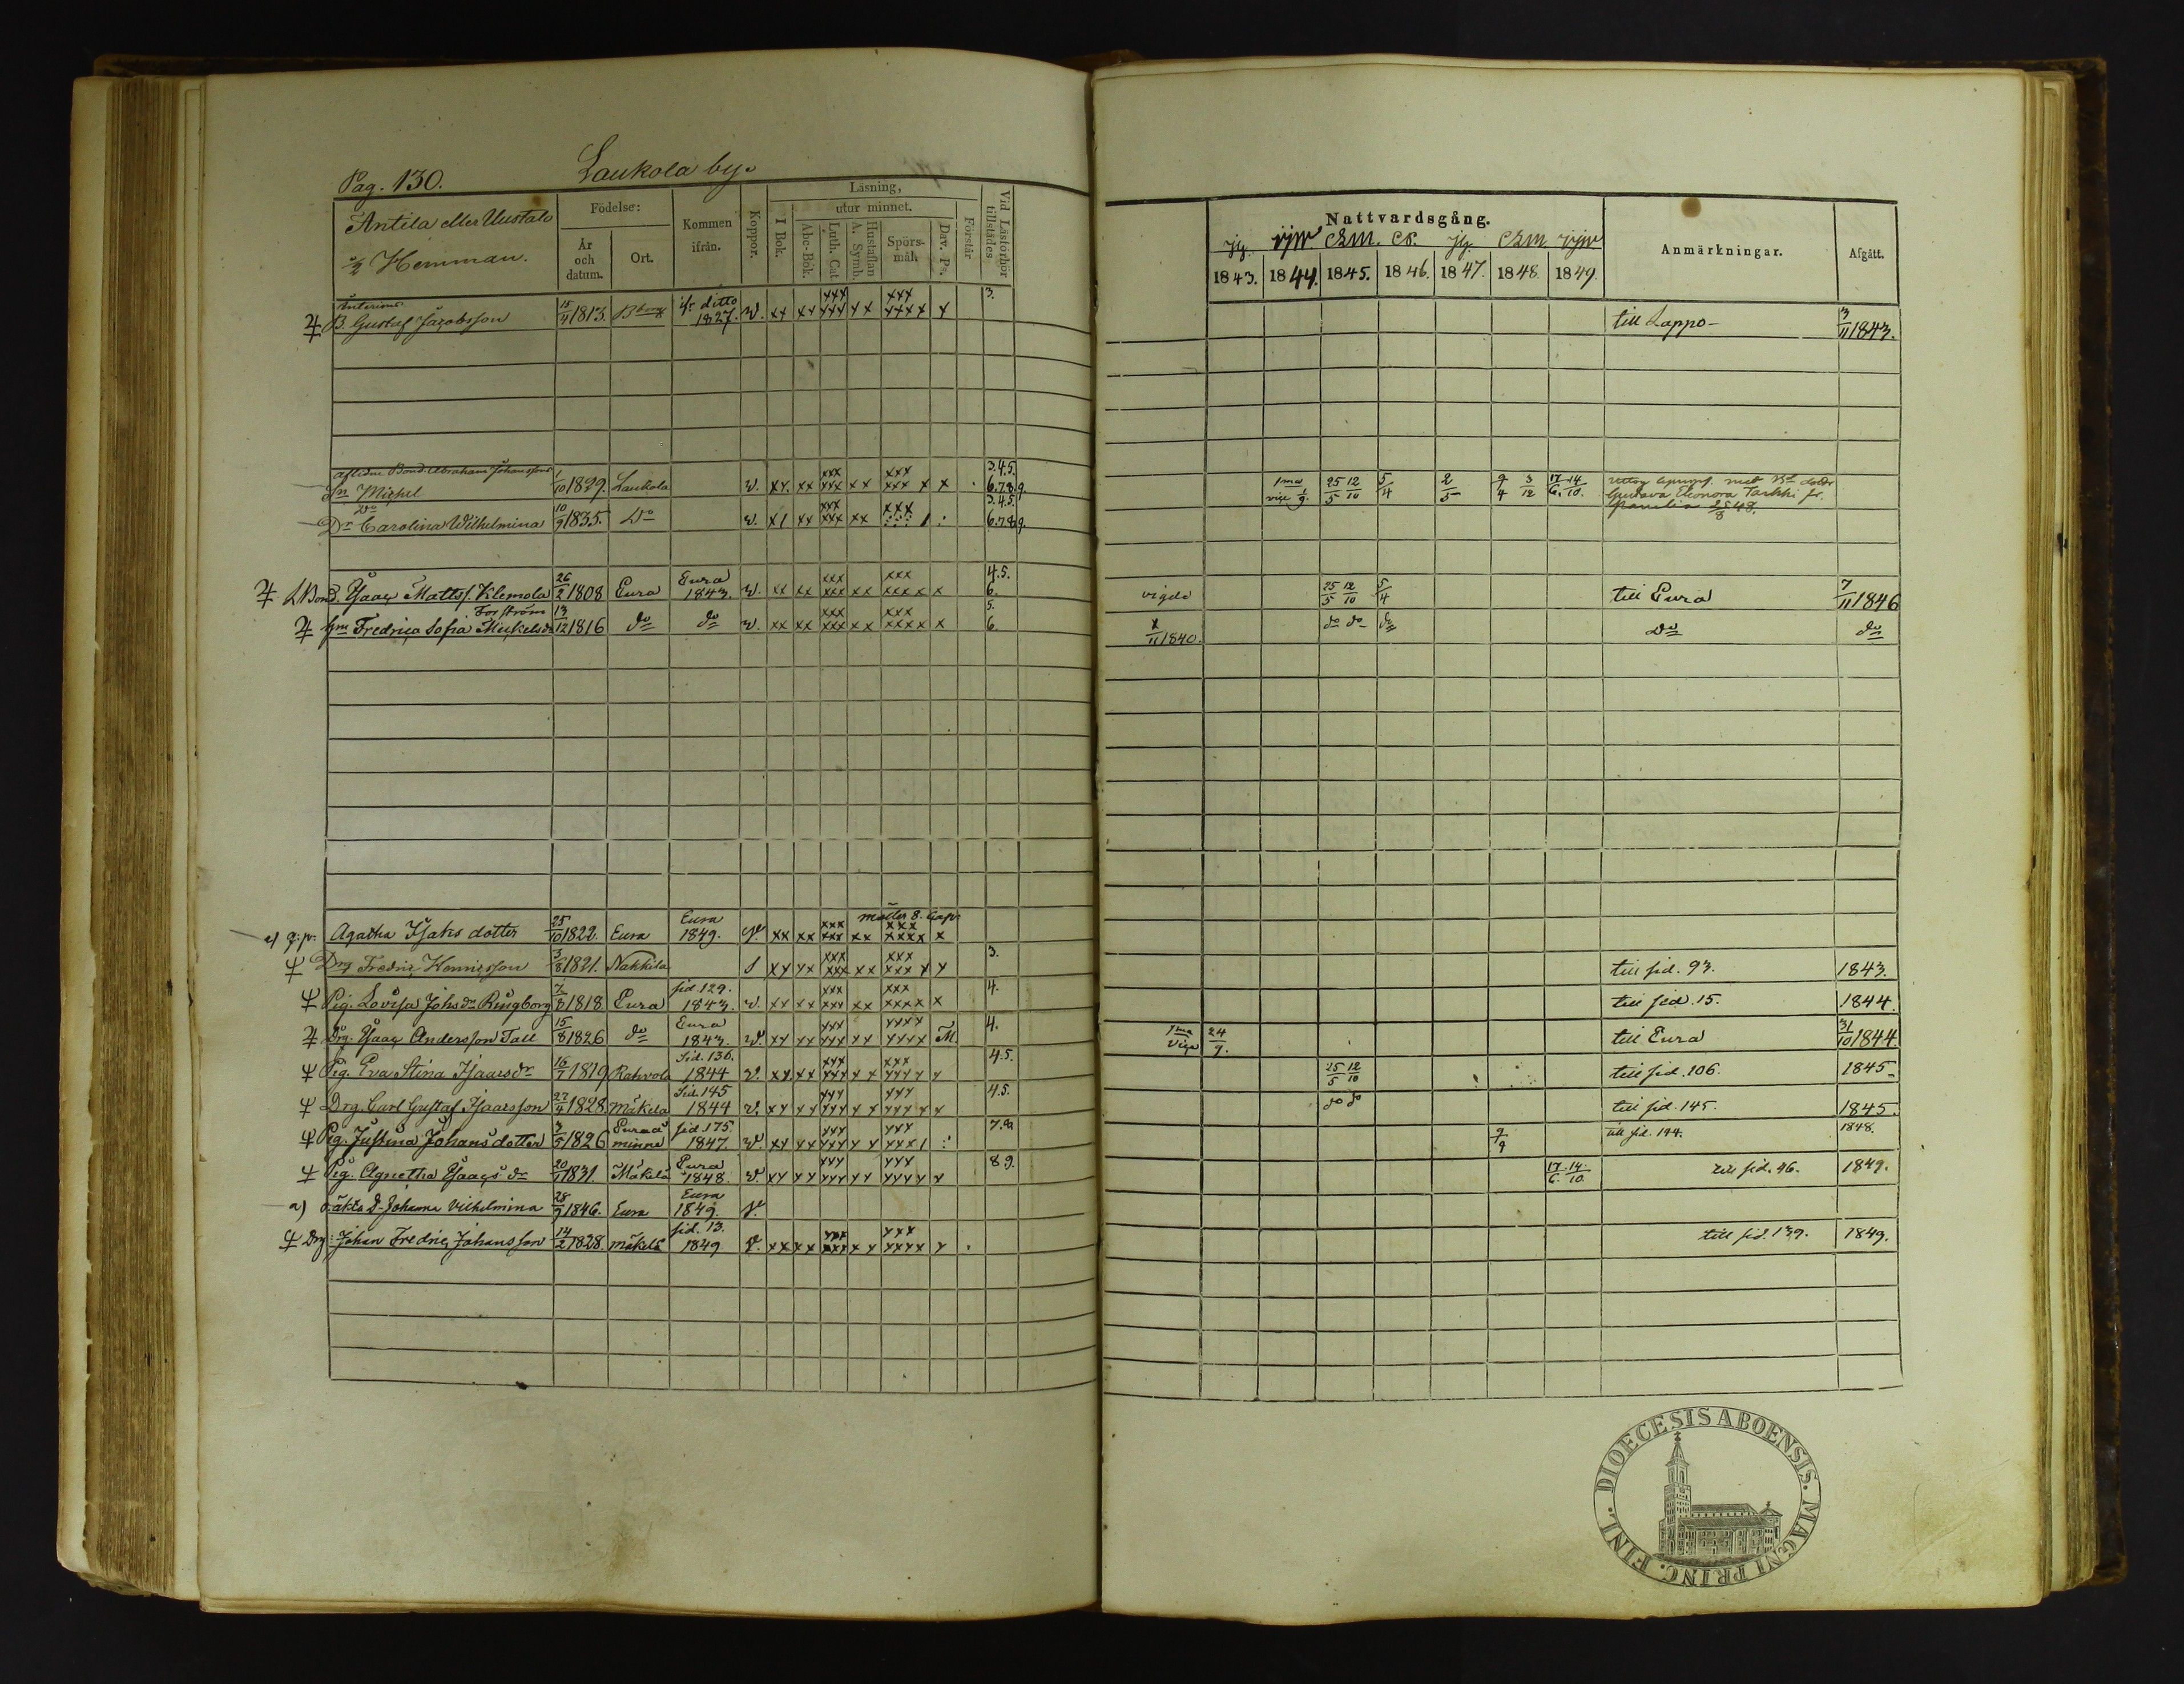 Pag. 130. Laukola by.
Antila eller Uustalo
½ Hemman.
Födelse:
År och datum.
Ort.
Kommen ifrån.
Koppor.
Läsning,
I Bok.
utur minnet.
Abc-Bok.
Luth. Cat.
Hustaflan A. Symb.
Spörs-mål.
Dav. Ps.
Förstår
Vid Läsförhör tillstädes
Nattvardsgång.
1843. 1844. 1845. 1846. 1847. 1848. 1849.
Anmärkningar.
Afgått.
B. Gustaf Jacobsson 15/4 1813. 1827. v. xx xx xxx xxx xx xxx xxxx x 3. till Lappo 3/11 1843.
Aflidne Bond. Abraham Johanssons
Sn Michel 1/10 1829. Laukola v. xx. xx xxx xxx xx xxx xxx x x 3.4.5. 6.7.8.9. 1ma vice 25/5 12/10 5/4 2/5 9/4 3/12 17/6. 14/10.
Do
Dr Carolina Wilhelmina 10/9 1835. Do v. x1 xx xxx xxx xx xxx 3.4.5. 6.7.8.9.
L Bond. Isaac Mattss. Klemola 26/2 1808 Eura Eura 1843. v. xx xx xxx xxx xx xxx xxxx x 4.5. 6. vigde 25/5 12/10 5/4 till Eura 7/11 1846
Forström
hm Fredrica Sofia Mickelsdr 13/12 1816 do do v. xx xx xxx xxx xx xxx xxxx x 5. 6. /11 1840. do do do do do
Agatha Isaks dotter 25/10 1822. Eura Eura 1849. xx xx xxx xxx xx xxx xxxx x
Drg Fredric Henricsson 3/8 1821. Nakkila xx xx xxx xxx xx xxx xxx x x 3. till sid. 93. 1843.
Pig. Lovisa Johsdr Ringborg 7/8 1818 Eura sid. 129. 1843. v. xx xx xxx xxx xx xxx xxxx x 4. till sid. 15. 1844.
Drg. Isaac Andersson Tall 15/8 1826 do Eura 1843. v. xx xx xxx xxx xx xxxx xxxx M. 4. 1ma vice 24/9. till Eura 31/10 1844.
Pig. Eva Stina Isaacsdr 16/7 1819 Rahvola Sid. 136. 1844 v. xx xx xxx xxxx x xxx xxxx x 4.5. 25/5 12/10 till sid. 106. 1845
Drg. Carl Gustaf Isaacsson 27/4 1828. Mäkelä Sid. 145 1844 v. xx xx xxx xxxx x xxx xxxx x 4.5. do do till sid. 145. 1845.
Pig. Justina Johansdotter 3/5 1826 Euraåminne sid. 175 1847. v. xx xx xxx xxxx x xxx xxx1 : 9/9 till sid. 194. 1848.
Pig. Agnetha Isaacsdr 20/1 1831. Mäkelä Eura 1848. v. xx xx xxx xxxx x xxx xxxx x 8 9. 17/6. 14/10. till sid. 46. 1849.
a) oäkta D. Johanna Vilhelmina 28/9 1846. Eura Eura 1849.
Drg: Johan Fredric Johansson 14/2 1828. Mäkelä sid. 13. 1849 v. xx xx xxx xxx xx xxx xxxx x till sid. 139. 1849.
FINL. DIOECESIS ABOENSIS. MAGNI PRINC.